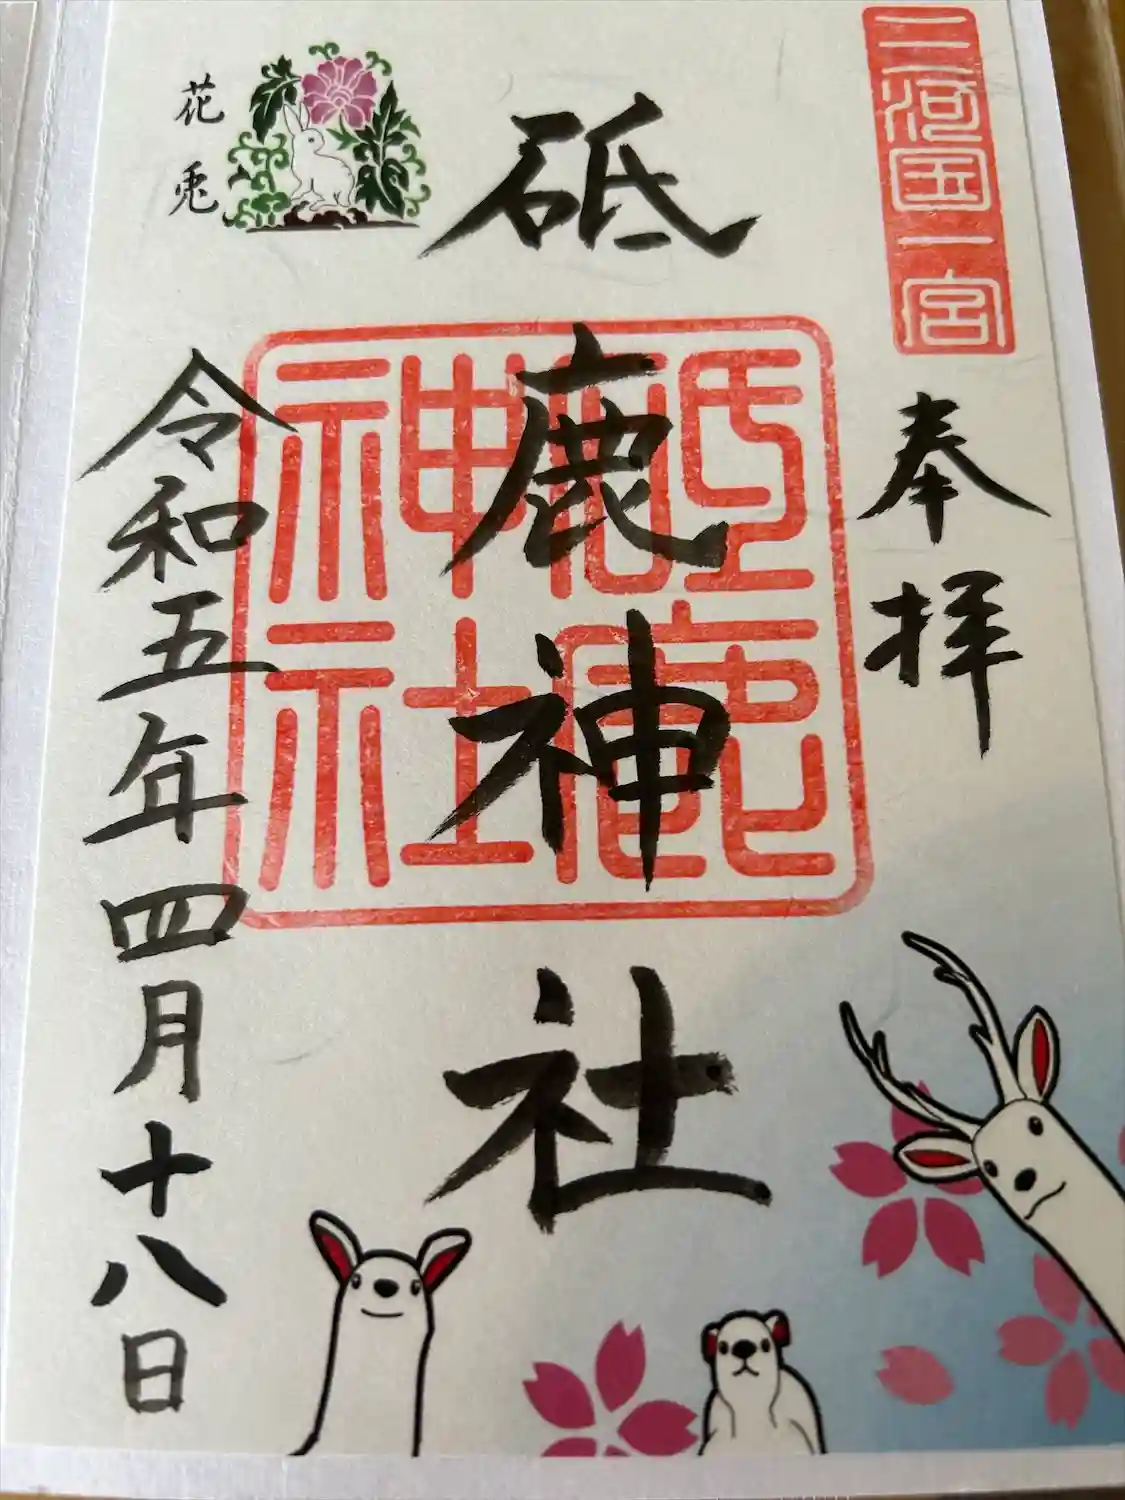 三河国一宮
奉拝
砥鹿神社
砥鹿神社
花兎
令和五年四月十八日